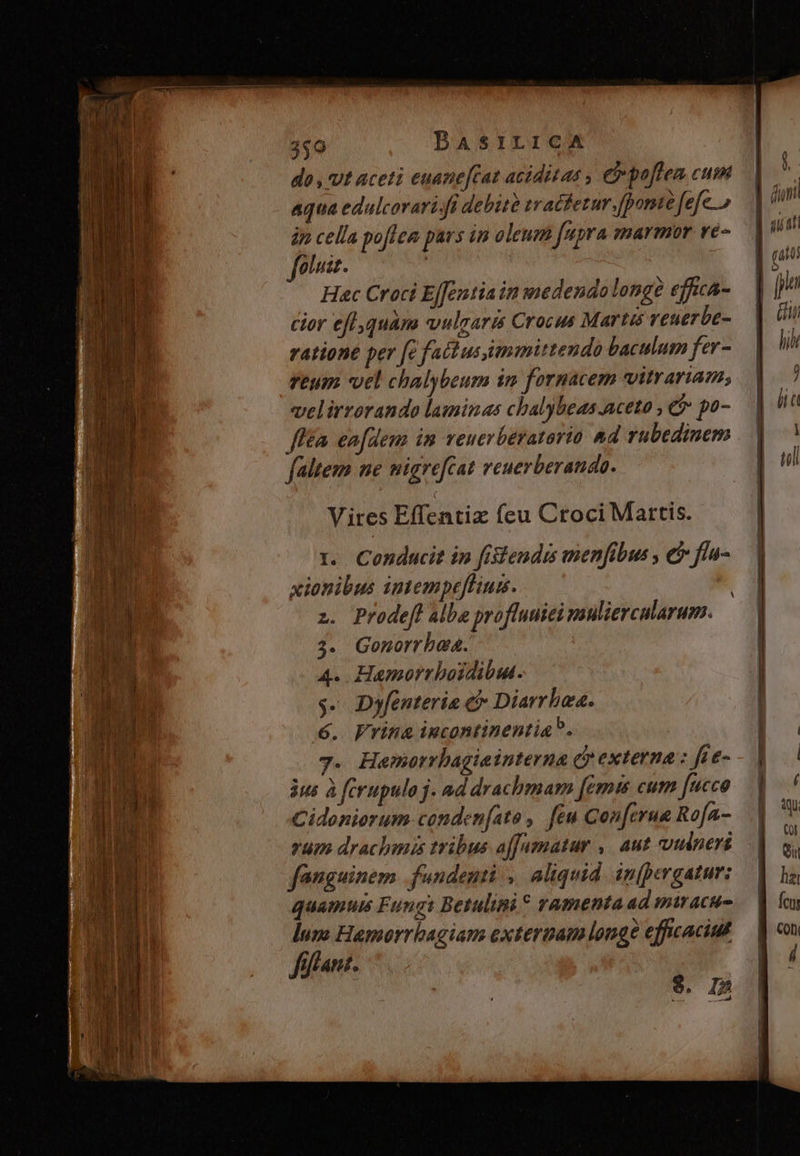 350 BASILICA
do, vt aceti euaneſcat aciditas, & poſtea cum
aqua edulcorari, ſi debitè tractetur, ſpontè ſeſe
in cella poſtea pars in oleum ſupra marmor re-
ſoluit.
Hæc Croci Eſſentia in medendo longè effica-
cior eſt, quàm vulgaris Crocus Martis reuerbe-
ratione per ſe factus, immittendo baculum fer-
reum vel chalybeum in fornacem vitrariam,
vel irrorando laminas chalybeas aceto, & po-
ſtea eaſdem in reuerberatorio ad rubedinem
ſaltem ne nigreſcat reuerberando.
Vires Eſſentiæ ſeu Croci Martis.
1. Conducit in ſiſtendis menſibus, & flu-
xionibus intempeſtiuis.
2. Prodeſt albæ profluuiei muliercularum.
3. Gonorrhææ.
4. Hæmorrhoïdibus.
5. Dyſenteriæ & Diarrhææ.
6. Vrinæ incontinentiæ b.
7. Hæmorrhagiæ internæ & externæ: ſi e-
ius à ſcrupulo j. ad drachmam ſemis cum ſucco
Cidoniorum condenſato, ſeu Conſerua Roſa-
rum drachmis tribus aſſumatur, aut vulneri
ſanguinem fundenti, aliquid inſpergatur:
quamuis Fungi Betulini c ramenta ad miracu-
lum Hæmorrhagiam externam longè efficaciùs
ſiſtant.
8. In